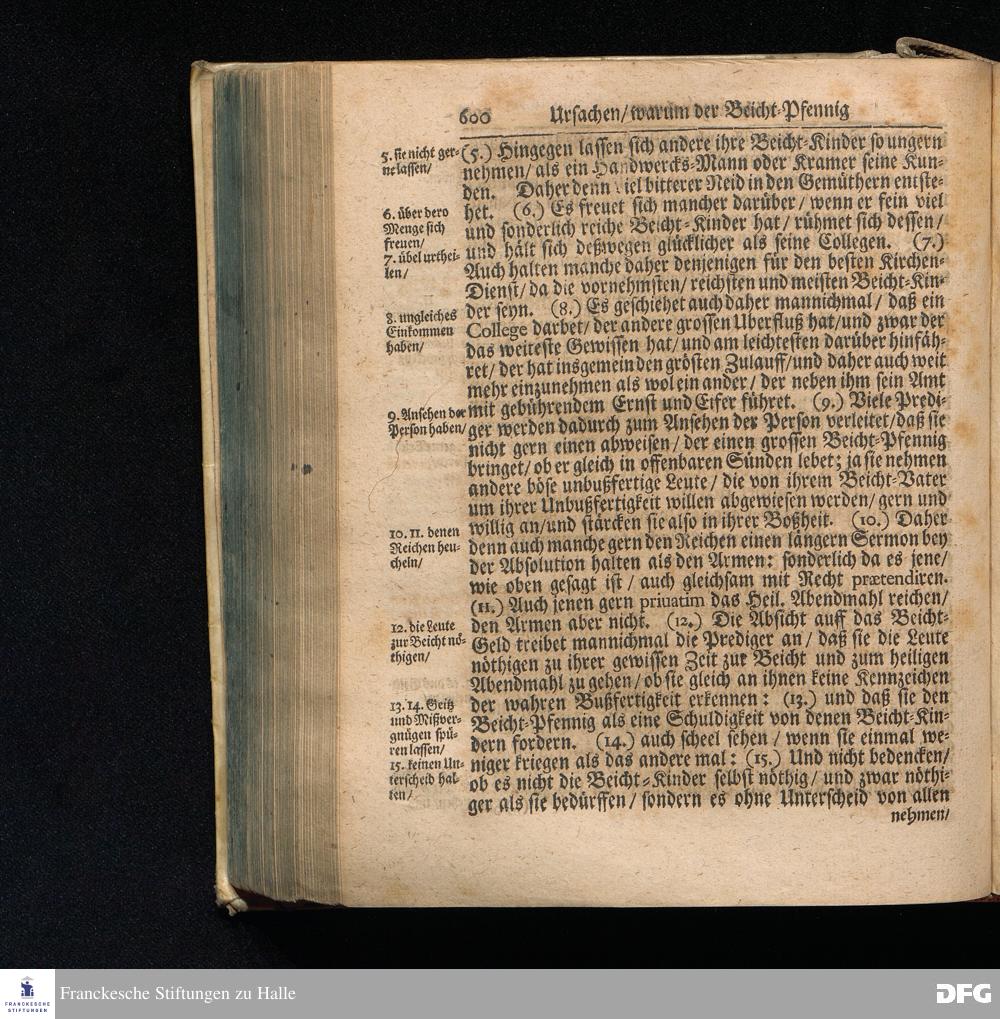 600 Ursachen/ warum der Beicht-Pfennig
5. sie nicht ger-
ne lassen/
(5.) Hingegen lassen sich andere ihre Beicht-Kinder so ungern
nehmen/ als ein Handwercks-Mann oder Kramer seine Kun-
den. Daher denn viel bitterer Neid in den Gemüthern entste-
het. (6.) Es freuet sich mancher darüber/ wenn er fein viel
6. über dero
Menge sich
freuen/
und sonderlich reiche Beicht-Kinder hat/ rühmet sich dessen/
und hält sich deßwegen glücklicher als seine Collegen. (7.)
7. übel urthei-
len/
Auch halten manche daher denjenigen für den besten Kirchen-
Dienst/ da die vornehmsten/ reichsten und meisten Beicht-Kin-
der seyn. (8.) Es geschiehet auch daher mannichmal/ daß ein
8. ungleiches
Einkommen
haben/
College darbet/ der andere grossen Uberfluß hat/ und zwar der
das weiteste Gewissen hat/ und am leichtesten darüber hinfäh-
ret/ der hat insgemein den grösten Zulauff/ und daher auch weit
mehr einzunehmen als wol ein ander/ der neben ihm sein Amt
9. Ansehen der
Person haben/
mit gebührendem Ernst und Eifer führet. (9.) Viele Predi-
ger werden dadurch zum Ansehen der Person verleitet/ daß sie
nicht gern einen abweisen/ der einen grossen Beicht-Pfennig
bringet/ ob er gleich in offenbaren Sünden lebet; ja sie nehmen
andere böse unbußfertige Leute/ die von ihrem Beicht-Vater
um ihrer Unbußfertigkeit willen abgewiesen werden/ gern und
willig an/ und stärcken sie also in ihrer Boßheit. (10.) Daher
10. 11. denen
Reichen heu-
cheln/
denn auch manche gern den Reichen einen längern Sermon bey
der Absolution halten als den Armen: sonderlich da es jene/
wie oben gesagt ist/ auch gleichsam mit Recht prætendiren.
(11.) Auch jenen gern priuatim das Heil. Abendmahl reichen/
den Armen aber nicht. (12.) Die Absicht auff das Beicht-
12. die Leute
zur Beicht nö-
thigen/
Geld treibet mannichmal die Prediger an/ daß sie die Leute
nöthigen zu ihrer gewissen Zeit zur Beicht und zum heiligen
Abendmahl zu gehen/ ob sie gleich an ihnen keine Kennzeichen
der wahren Bußfertigkeit erkennen: (13.) und daß sie den
13. 14. Geitz
und Mißver-
gnügen spü-
ren lassen/
Beicht-Pfennig als eine Schuldigkeit von denen Beicht-Kin-
dern fordern. (14.) auch scheel sehen/ wenn sie einmal we-
niger kriegen als das andere mal: (15.) Und nicht bedencken/
15. keinen Un-
terscheid hal-
ten/
ob es nicht die Beicht-Kinder selbst nöthig/ und zwar nöthi-
ger als sie bedürffen/ sondern es ohne Unterscheid von allen
nehmen/
FRANCKESCHE
STIFTUNGEN
Franckesche Stiftungen zu Halle
DFG